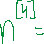 n^[4] =